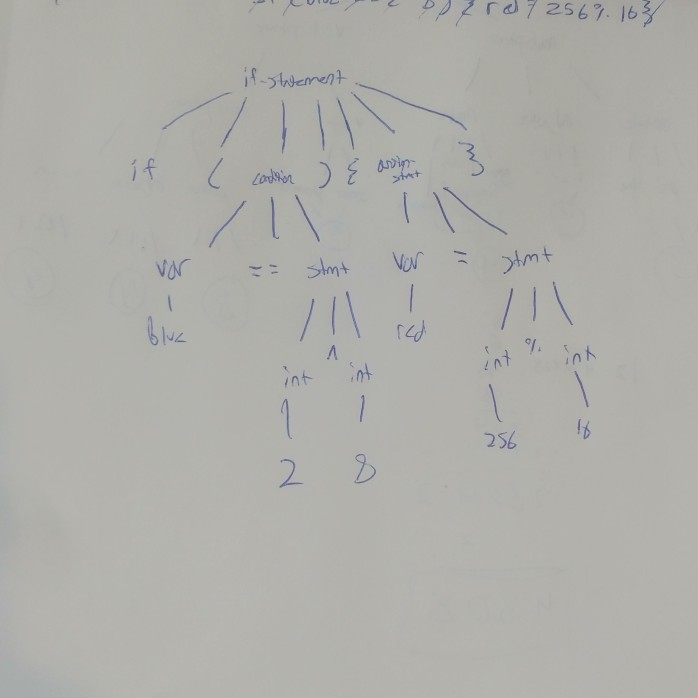 2 8)) { red = 256 % 16 }
if-statement
if ( condition ) { assign- }
stmt
var == stmt var = stmt
blue ^ red
int int int % int
256 16
2 8